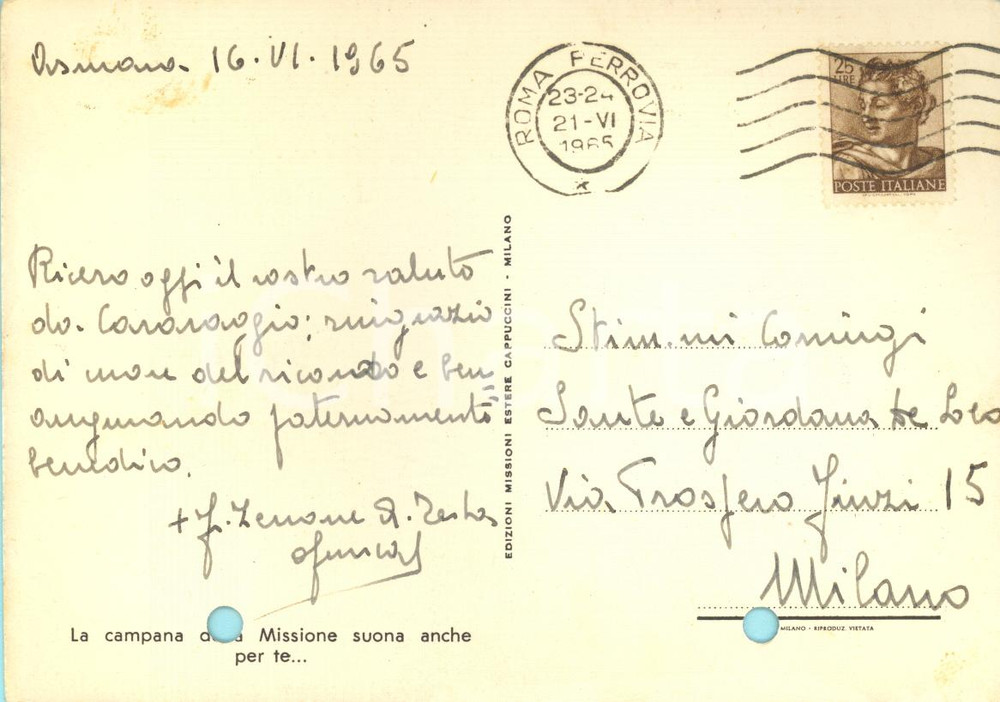 Asmara 16.VI.1965
Ricevo oggi il vostro saluto
da Caravaggio; ringrazio
di cuore del ricordo e ben
augurando paternamente
benedico.
+ f. Zenone A. Testa
ofmcap
La campana della Missione suona anche
per te...
EDIZIONI MISSIONI ESTERE CAPPUCCINI - MILANO
ROMA FERROVIA
23-24
21-VI
1965
25
LIRE
POSTE ITALIANE
Stim.mi Coniugi
Sante e Giordana De
Via Prospero Finzi 15
Milano
MILANO - RIPRODUZ. VIETATA